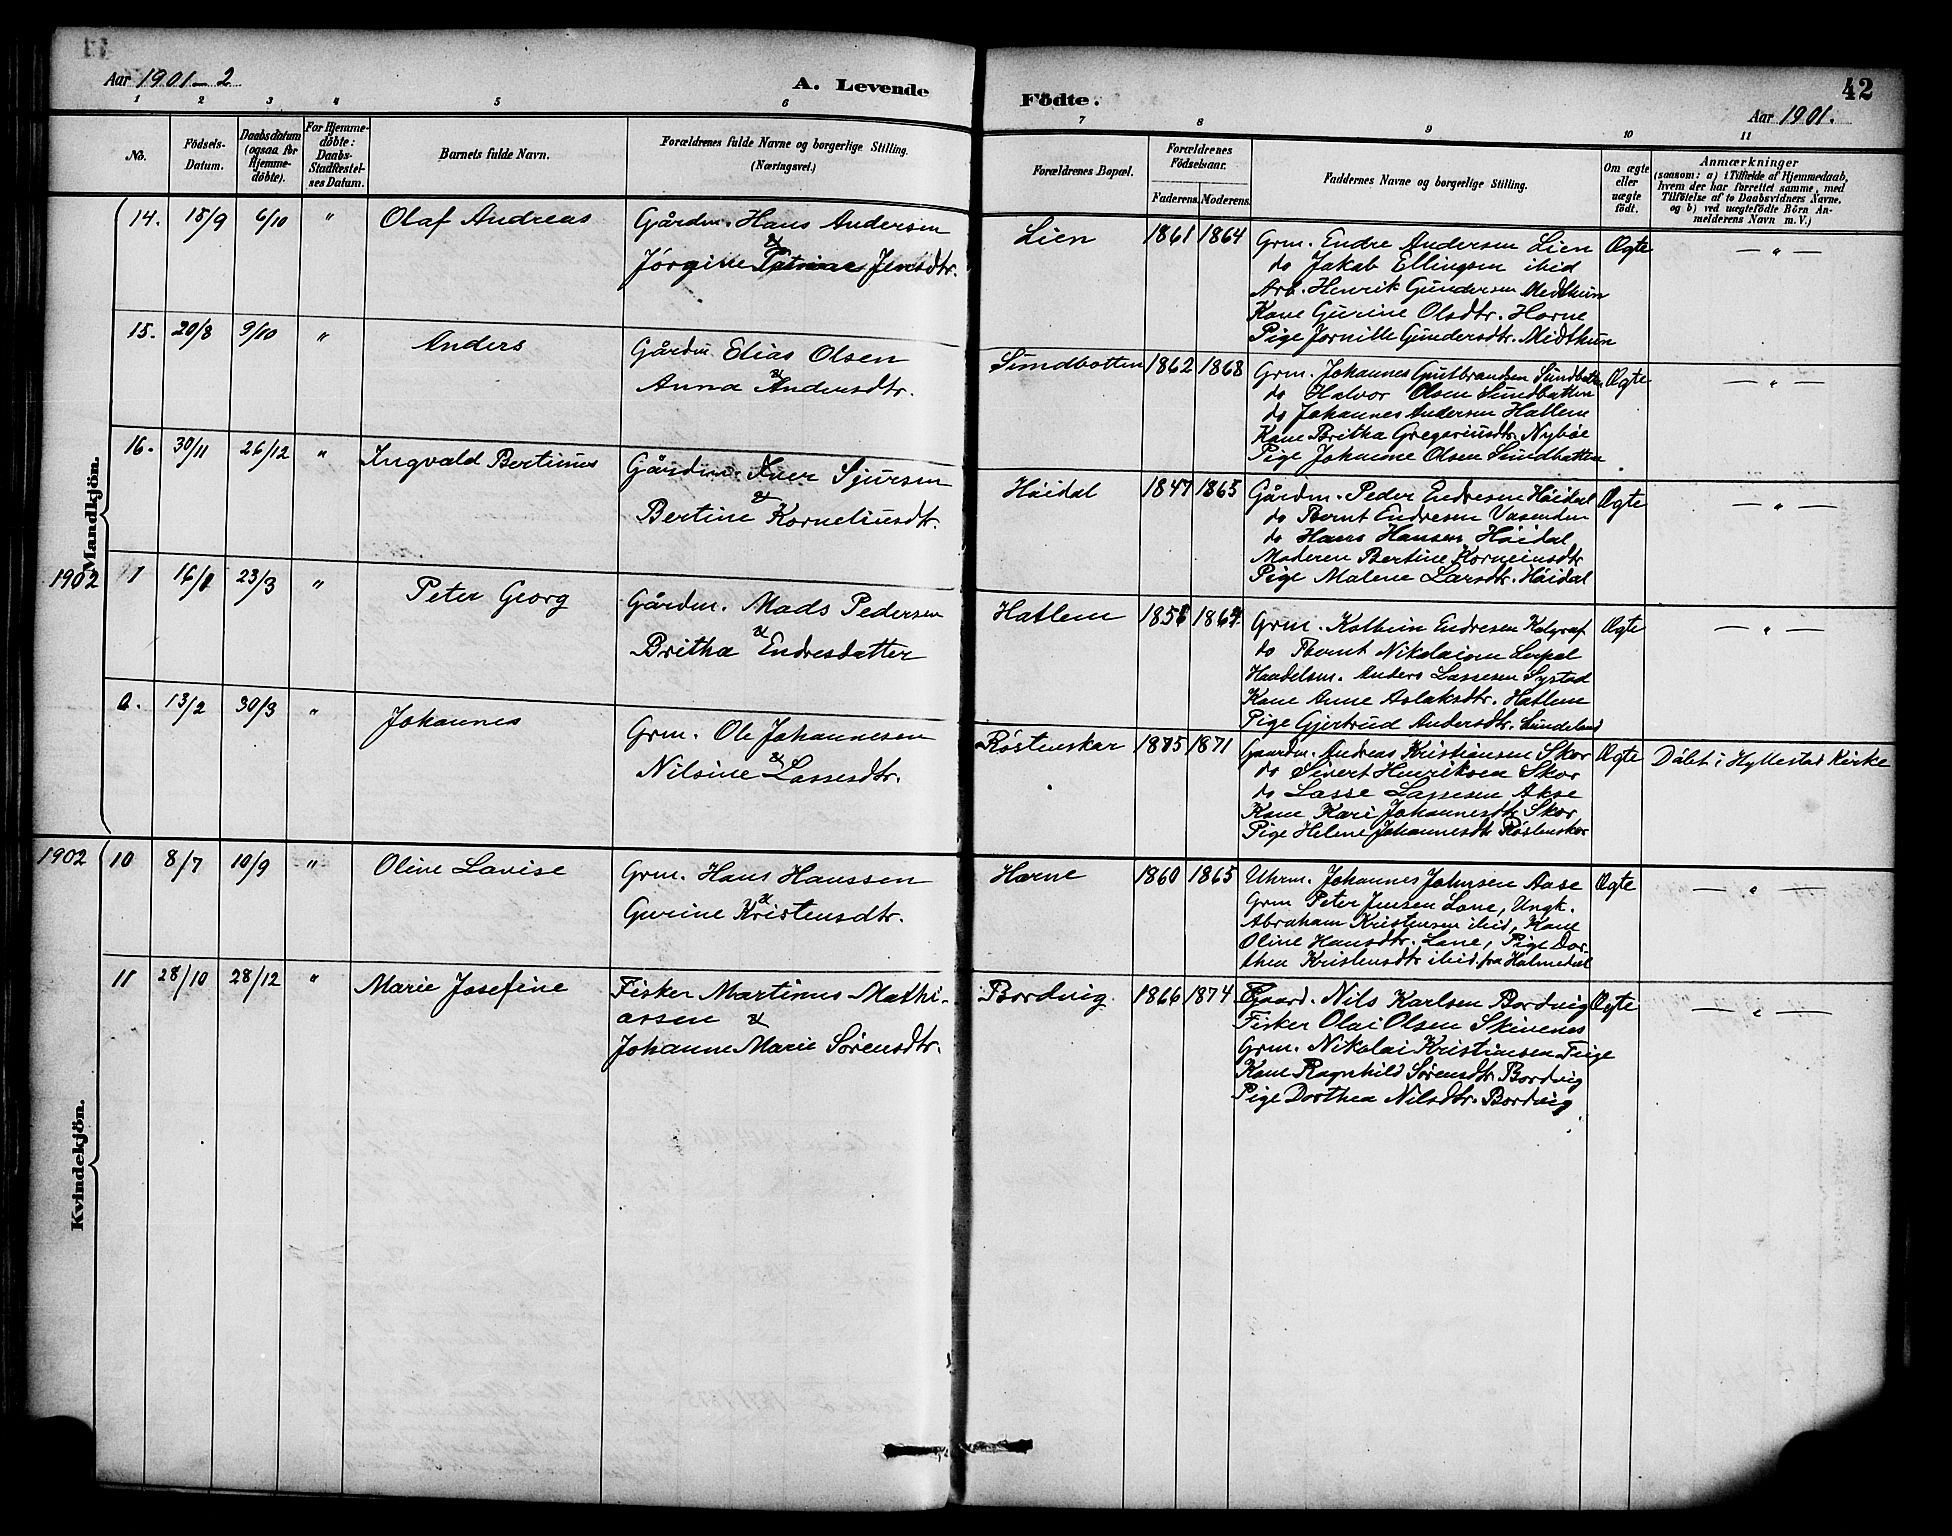 42
Aar 1901-2
A. Levende
Födte.
Aar 1901.
1 2 3 4 5 6 7 8 9 10 11
No.
Födsels-
Datum.
Daabsdatum
(ogsaa for
Hjemme-
döbte).
For Hjemme-
döbte:
Daabs-
Stadfæstel-
ses Datum.
Barnets fulde Navn.
Forældrenes fulde Navne og borgerlige Stilling.
(Næringsvei.)
Forældrenes Bopæl.
Forældrenes
Födselsaar.
Faderens. Moderens.
Faddernes Navne og borgerlige Stilling.
Om ægte
eller
uægte
födt.
Anmærkninger
(saasom: a) i Tilfælde af Hjemmedaab,
hvem der har forrettet samme, med
Tilföielse af to Daabsvidners Navne.
og b) ved uægtefödte Börn An-
melderens Navn m. V.)
Mandkjön.
14. 15/9 6/10 " Olaf Andreas
Gårdm. Hans Andersen
&
Jørgine Jensdtr.
Lien 1861 1864
Grm. Endre Andersen Lien
do Jakob Ellingsen ibid
Arb. Henrik Gundersen Midthun
Kone Gurine Olsdtr. Horne
Pige Jornille Gundersdtr. Midthun
Ægte — " —
15. 20/8 9/10 " Anders
Gårdm. Elias Olsen
&
Anna Andersdtr.
Sundbotten 1862 1868
Grm. Johannes Gutbrandsen Sundbotten
do Halvor Olsen Sundbotten
do Johannes Andersen Hatlem
Kone Britha Gregoriusdtr. Nybøe
Pige Johanne Olsen Sundbotten
Ægte — " —
16. 30/11 26/12 " Ingvald Bertinus
Gårdm. Iver Sjursen
&
Bertine Korneliusdtr.
Høidal 1847 1865
Gårdm. Peder Endresen Høidal
do Bernt Endresen Vasenden
do Hans Hansen Høidal
Moderen Bertine Korneliusdtr
Pige Malene Larsdtr. Høidal
Ægte — " —
1902 1 16/1 23/3 " Peter Georg
Gårdm. Mads Pedersen
&
Britha Endresdatter
Hatlem
Grm. Endresen
do Bernt Nikolaisen
Handelsm. Anders Lassesen Systad
Kone Anne Aslaksdtr. Hatlem
Pige Gjertrud Andersdtr.
Ægte — " —
2. 13/2 30/3 " Johannes
Grm. Ole Johannesen
&
Nilsine Lassesdtr.
Røstenskar 1875 1871
Gaardm. Andreas Kristiansen Skor
do Sivert Henriksen Skor
do Lasse Lassesen Akse
Kone Kari Johannesdtr Skor
Pige Helene Johannesdtr Røstenskar
Ægte Døbt i Hyllestad Kirke
Kvindekjön.
1902 10 8/7 10/9 " Oline Lovise
Grm. Hans Hanssen
&
Gurine Kristensdtr.
Horne 1860 1865
Uhrm. Johannes Johnsen Aase
Grm Peter Jensen Lone, Ungk.
Abraham Kristensen ibid, Kone
Oline Hansdtr. Lone, Pige Dor-
thea Kristensdtr ibid. fra Holmedal
Ægte — " —
11 28/10 28/12 " Marie Josefine
Fisker Martinus Mathi-
assen &
Johanne Marie Sørensdtr.
Bordvig 1866 1874
Gaard. Nils Karlsen Bordvig
Fisker Olai Olsen Skivenes
Grm. Nikolai Kristiansen Teige
Kone Ragnhild Sørensdtr Bordvig
Pige Dorthea Nilsdtr. Bordvig
Ægte — " —